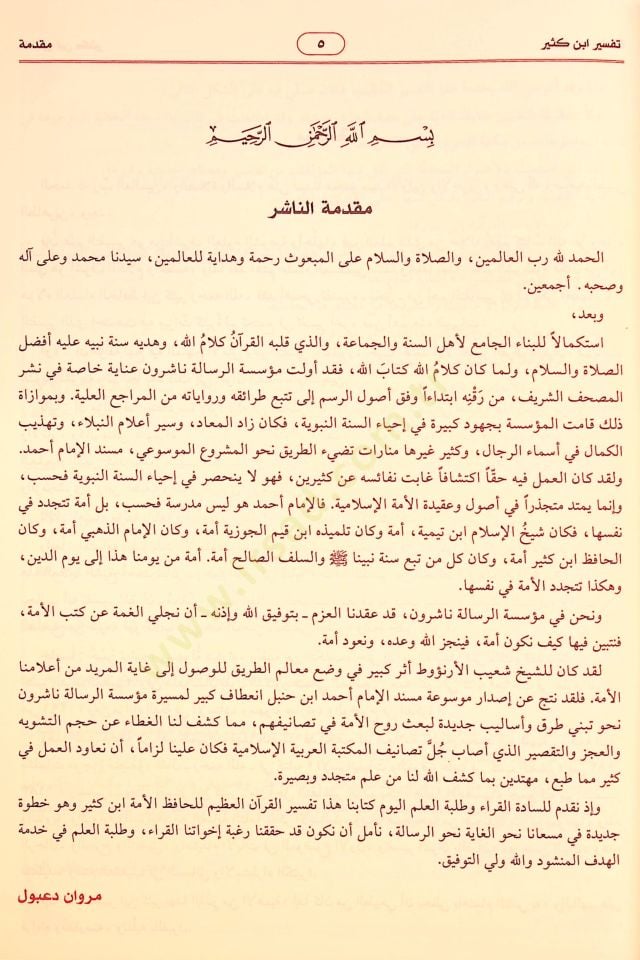 تفسير ابن كثير
٥
مقدمة
بِسْمِ اللَّهِ الرَّحْمَٰنِ الرَّحِيمِ
مقدمة الناشر
الحمد لله رب العالمين، والصلاة والسلام على المبعوث رحمة وهداية للعالمين، سيدنا محمد وعلى آله
وصحبه. أجمعين.
وبعد،
استكمالاً للبناء الجامع لأهل السنة والجماعة، والذي قلبه القرآنُ كلامُ الله، وهديه سنة نبيه عليه أفضل
الصلاة والسلام، ولما كان كلامُ الله كتابَ الله، فقد أولت مؤسسة الرسالة ناشرون عناية خاصة في نشر
المصحف الشريف، من رَقْنِه ابتداءاً وفق أصول الرسم إلى تتبع طرائقه ورواياته من المراجع العلية. وبموازاة
ذلك قامت المؤسسة بجهود كبيرة في إحياء السنة النبوية، فكان زاد المعاد، وسير أعلام النبلاء، وتهذيب
الكمال في أسماء الرجال، وكثير غيرها منارات تضيء الطريق نحو المشروع الموسوعي، مسند الإمام أحمد.
ولقد كان العمل فيه حقّاً اكتشافاً غابت نفائسه عن كثيرين، فهو لا ينحصر في إحياء السنة النبوية فحسب،
وإنما يمتد متجذراً في أصول وعقيدة الأمة الإسلامية. فالإمام أحمد هو ليس مدرسة فحسب، بل أمة تتجدد في
نفسها، فكان شيخُ الإسلام ابن تيمية، أمة وكان تلميذه ابن قيم الجوزية أمة، وكان الإمام الذهبي أمة، وكان
الحافظ ابن كثير أمة، وكان كل من تبع سنة نبينا ﷺ والسلف الصالح أمة. أمة من يومنا هذا إلى يوم الدين،
وهكذا تتجدد الأمة في نفسها.
ونحن في مؤسسة الرسالة ناشرون، قد عقدنا العزم ـ بتوفيق الله وإذنه ـ أن نجلي الغمة عن كتب الأمة،
فنتبين فيها كيف نكون أمة، فينجز الله وعده، ونعود أمة.
لقد كان للشيخ شعيب الأرنؤوط أثر كبير في وضع معالم الطريق للوصول إلى غاية المريد من أعلامنا
الأمة. فلقد نتج عن إصدار موسوعة مسند الإمام أحمد ابن حنبل انعطاف كبير لمسيرة مؤسسة الرسالة ناشرون
نحو تبني طرق وأساليب جديدة لبعث روح الأمة في تصانيفهم، مما كشف لنا الغطاء عن حجم التشويه
والعجز والتقصير الذي أصاب جُلَّ تصانيف المكتبة العربية الإسلامية فكان علينا لزاماً، أن نعاود العمل في
كثير مما طبع، مهتدين بما كشف الله لنا من علم متجدد وبصيرة.
وإذ نقدم للسادة القراء وطلبة العلم اليوم كتابنا هذا تفسير القرآن العظيم للحافظ الأمة ابن كثير وهو خطوة
جديدة في مسعانا نحو الغاية نحو الرسالة، نأمل أن نكون قد حققنا رغبة إخواتنا القراء، وطلبة العلم في خدمة
الهدف المنشود والله ولي التوفيق.
مروان دعبول